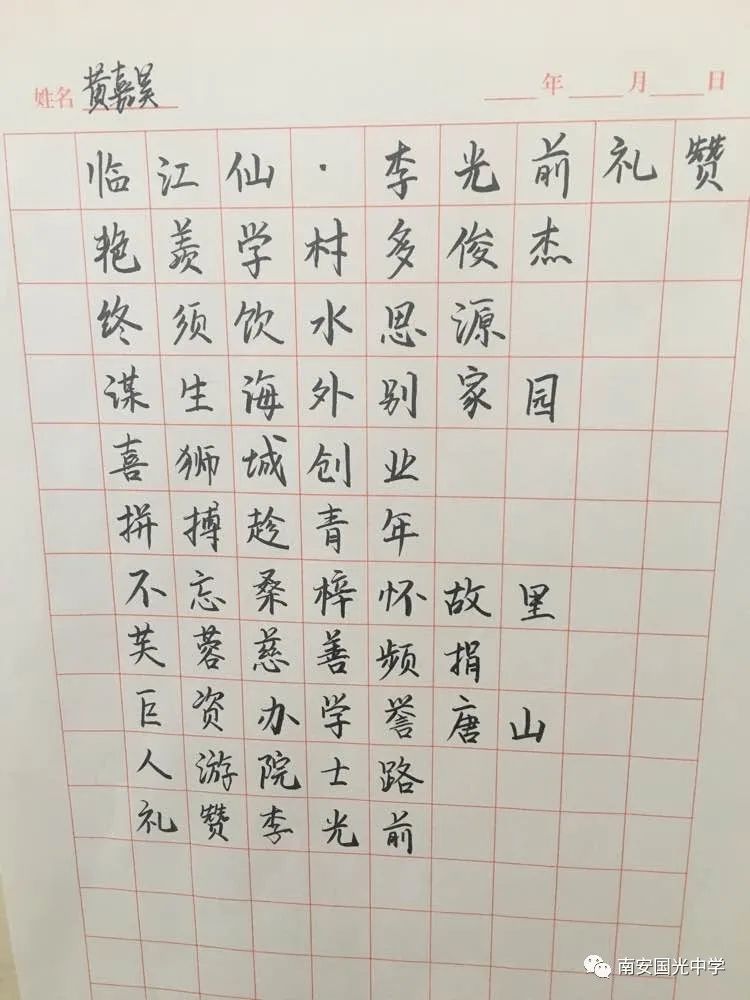 姓名 黄嘉昊 年 月 日
临江仙·李光前礼赞
艳羡学村多俊杰
终须饮水思源
谋生海外别家园
喜狮城创业
拼搏趁青年
不忘桑梓怀故里
芙蓉慈善频捐
巨资办学誉唐山
人游院士路
礼赞李光前
南安国光中学